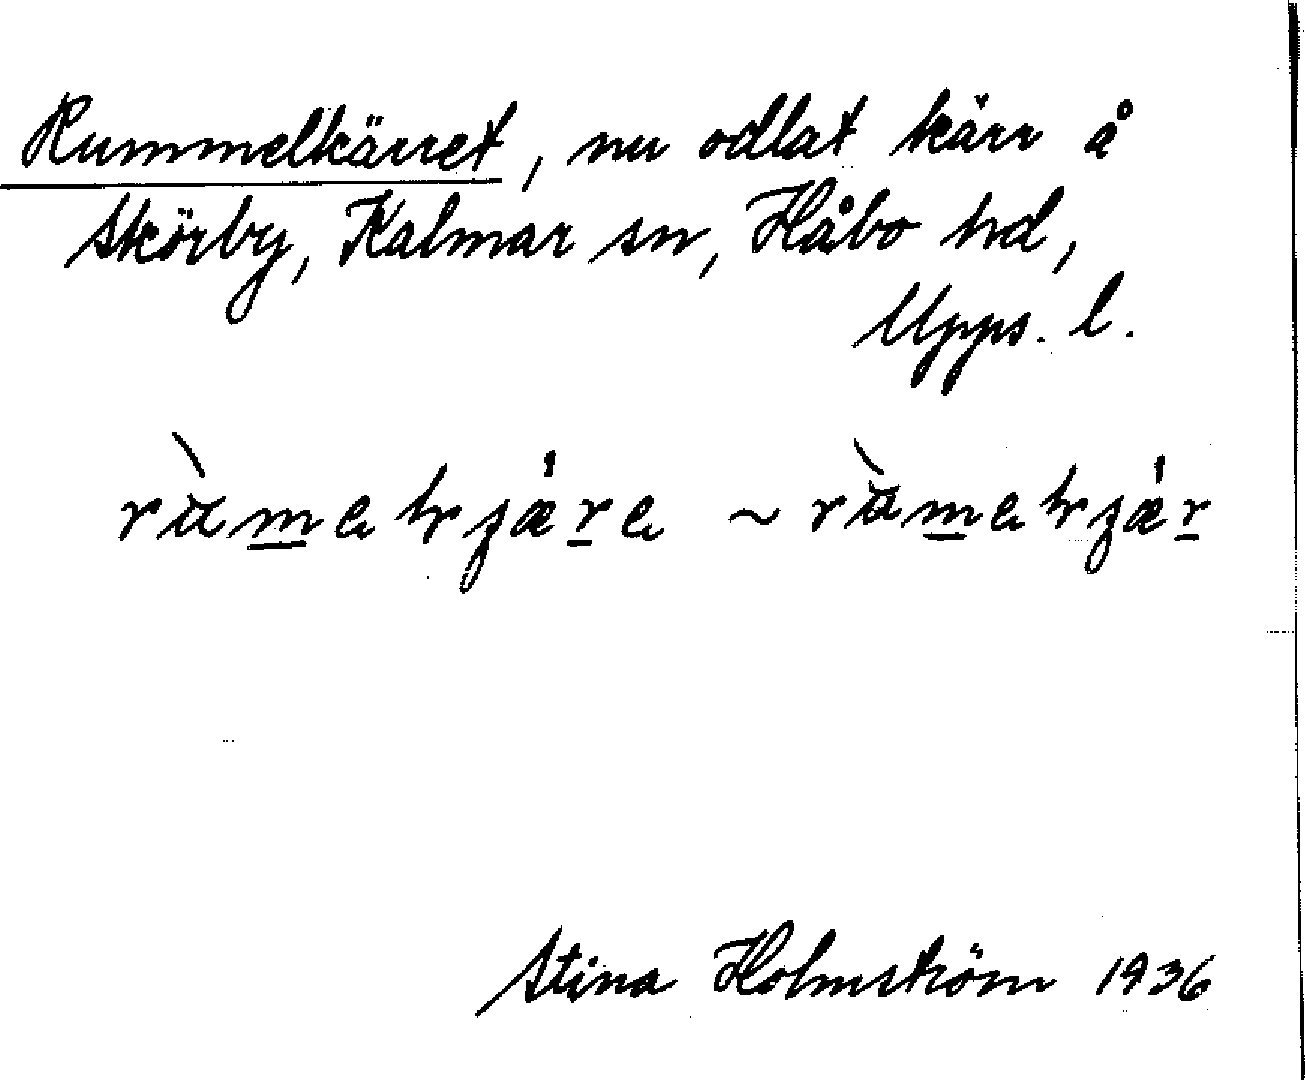 Rummelkärret, nu odlat kärr å
Skörby, Kalmar sn, Håbo hd,
Upps. l.
Stina Holmström 1936